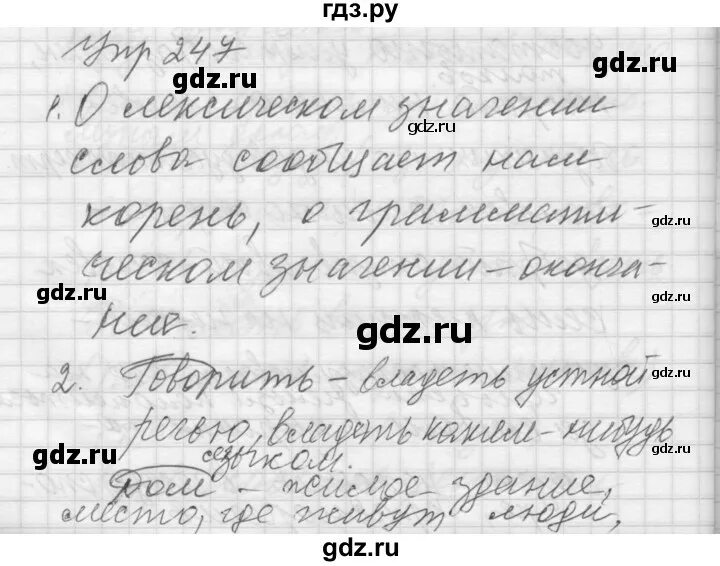 гдз.ру
Упр 247
gdz.ru
gdz.ru
1. О лексическом значении
gdz.ru
слова сообщает нам
корень, о граммати-
gdz.ru
ческом значении – оконча-
gdz.ru
gdz.ru
ние.
gdz.ru
2. Говорить – владеть устной
gdz.ru
речью, владеть каким-нибудь
gdz.ru
gdz.ru
языком.
Дом – жилое здание,
место, где живут люди,
gdz.ru
gdz.ru